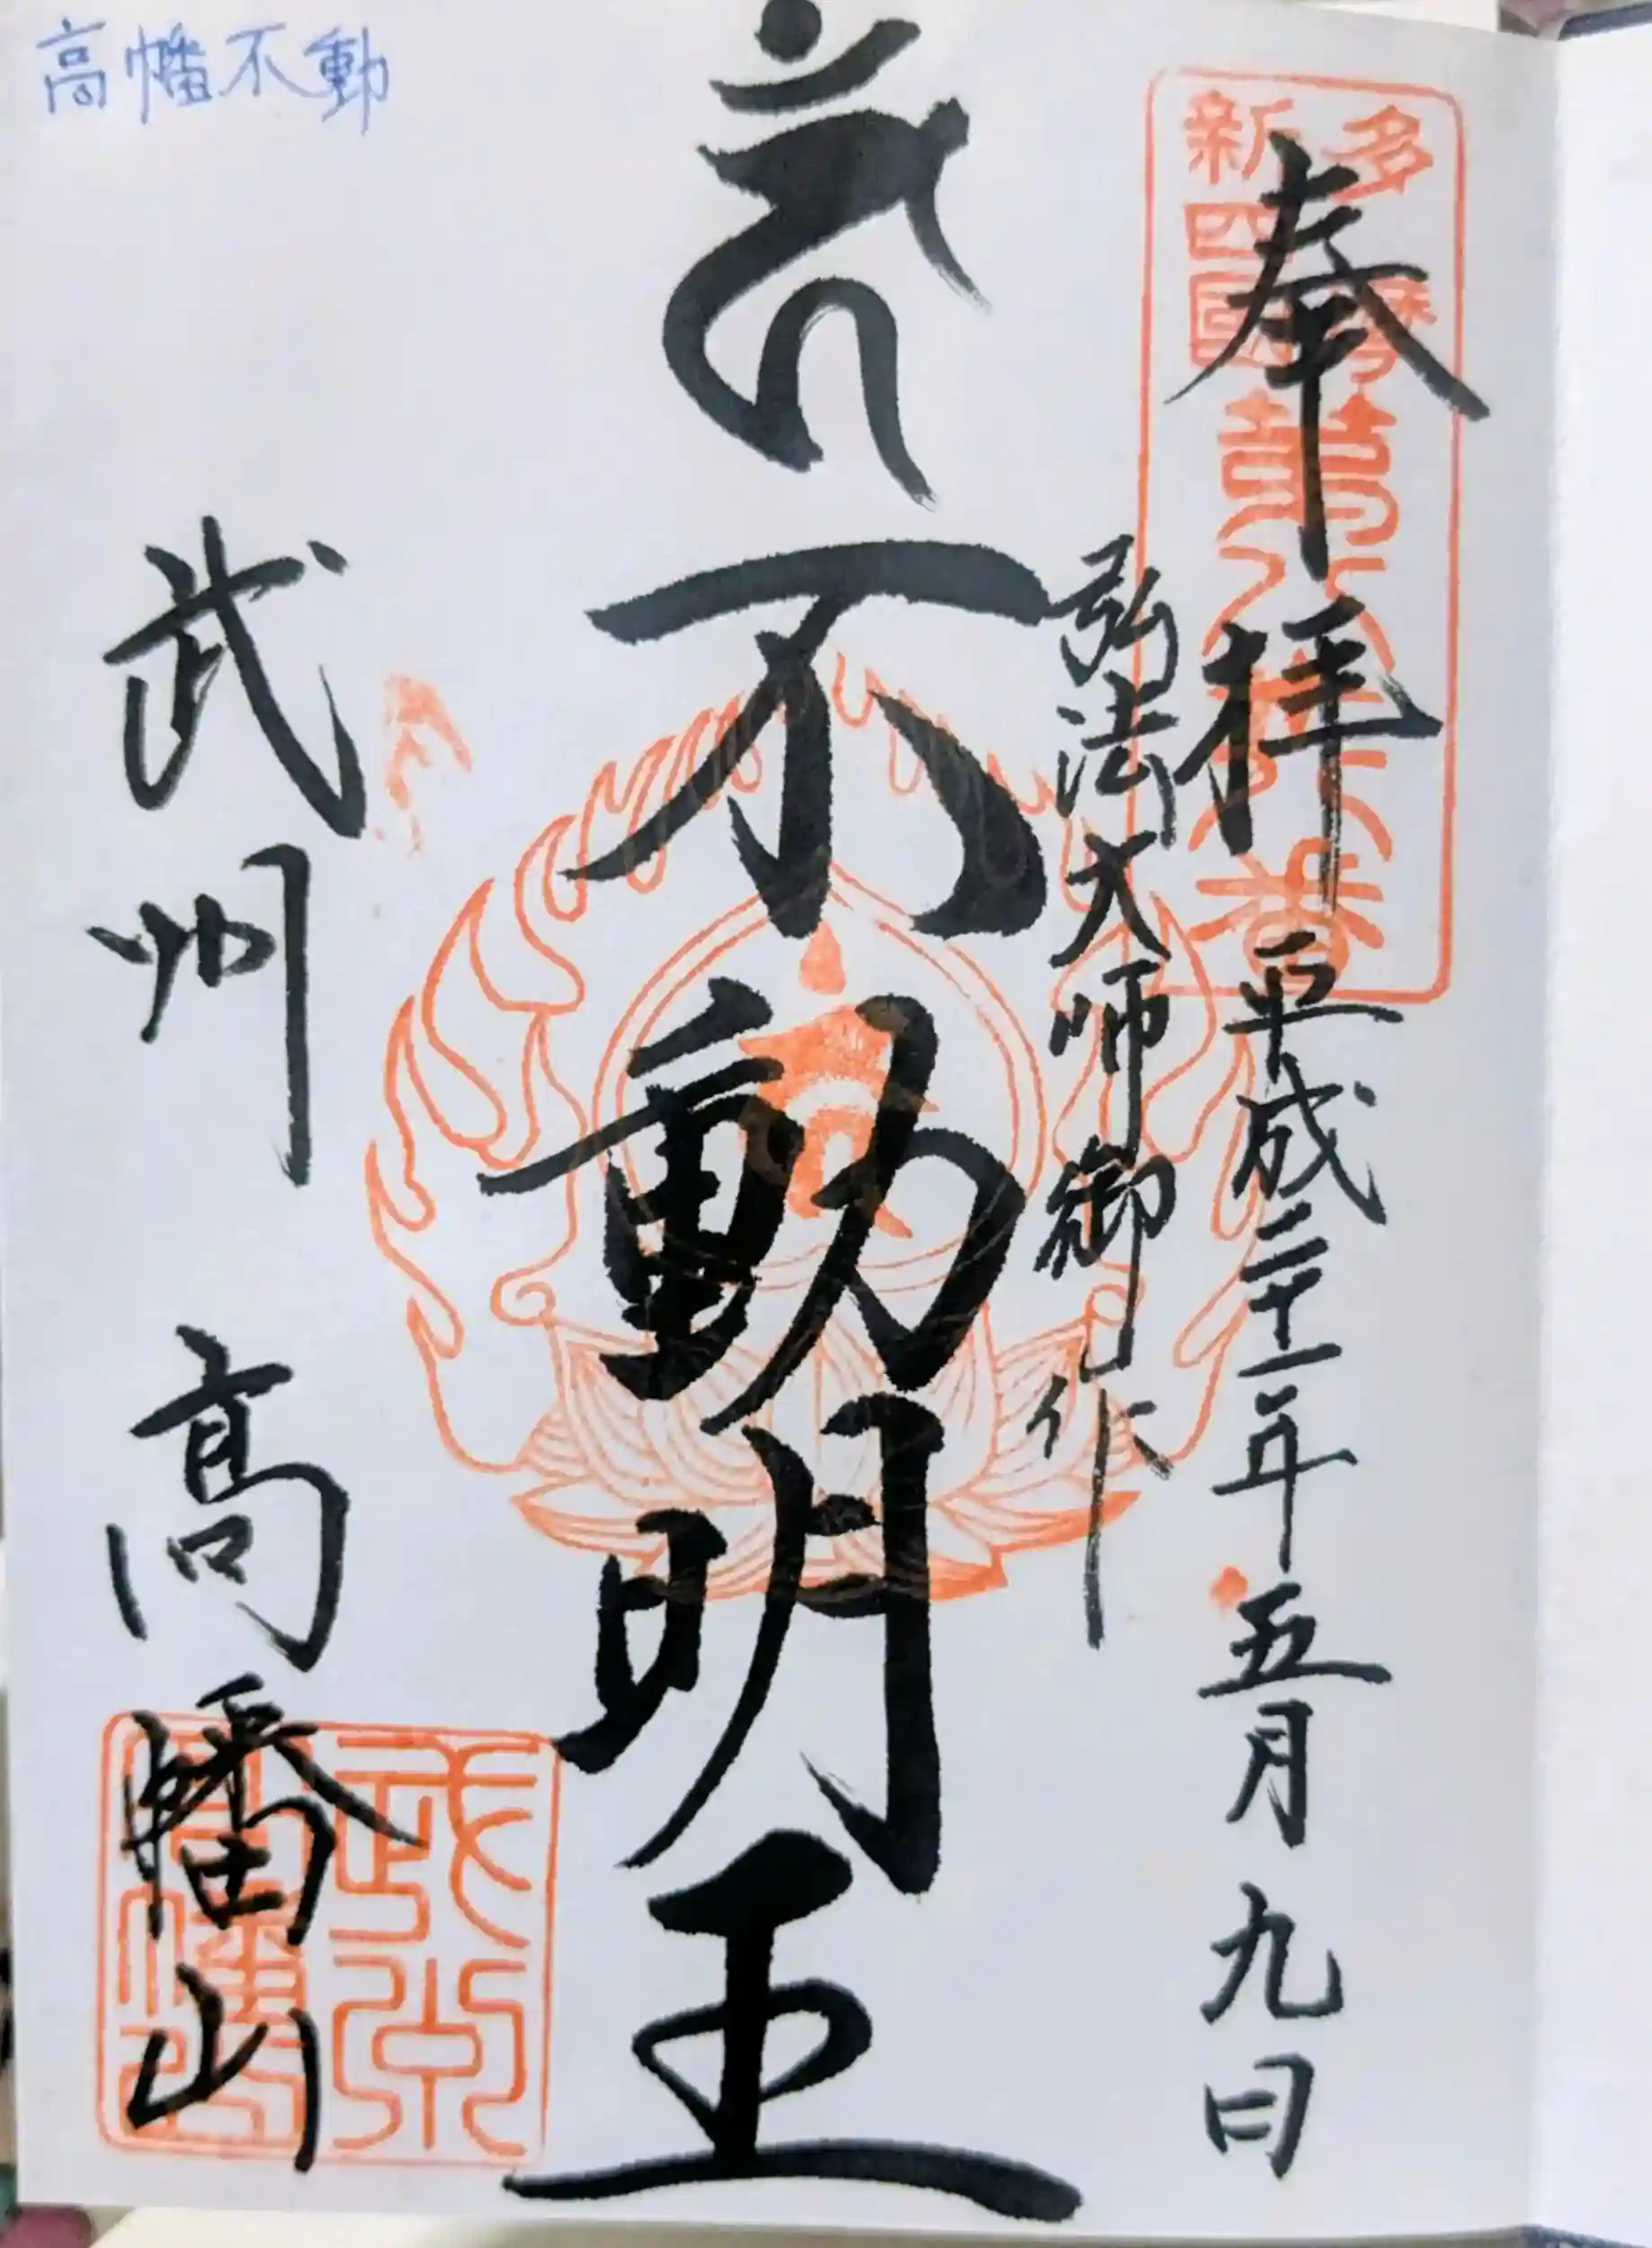 高幡不動
奉拝
平成二十一年五月九日
弘法大師御作
不動明王
武州 高幡山
多摩
新四國
第八十八番
武州